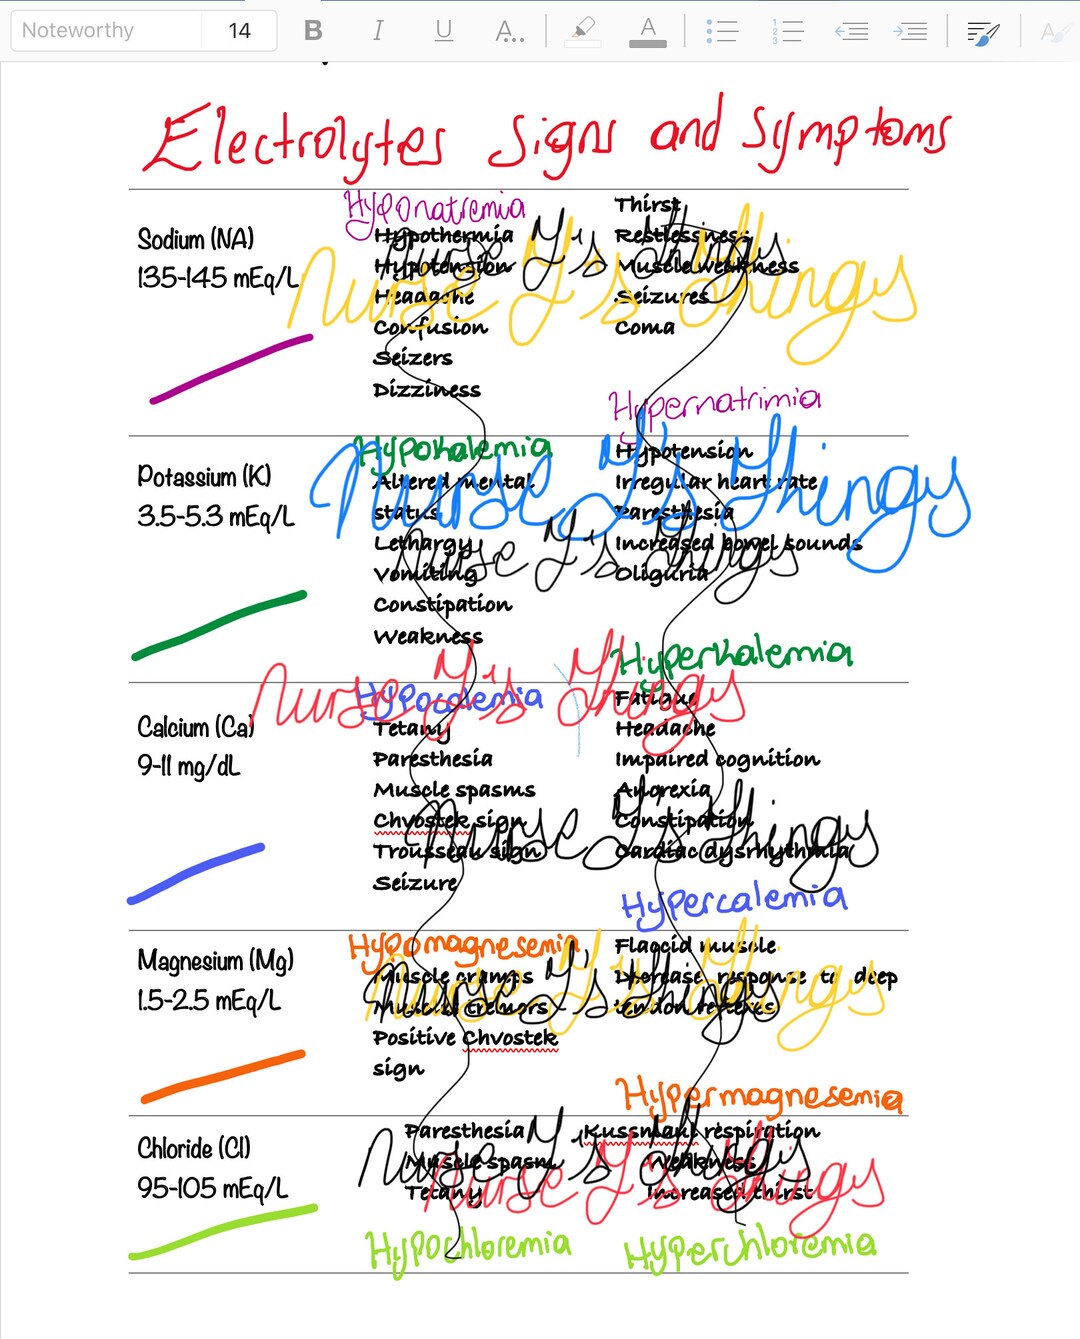 Noteworthy 14 B I U A..
Electrolytes Signs and Symptoms
Sodium (NA)
135-145 mEq/L
Hyponatremia
Hypothermia
Hypotension
Headache
Confusion
Seizers
Dizziness
Thirst
Restlessness
Muscle weakness
Seizures
Coma
Hypernatrimia
Nurse Y's things
Nurse Y's thingy
Potassium (K)
3.5-5.3 mEq/L
Hypokalemia
Altered mental
status
Lethargy
Vomiting
Constipation
Weakness
Hypotension
Irregular heart rate
Paresthesia
Increased bowel sounds
Oliguria
Hyperkalemia
Nurse Y's thingy
Nurse Y's things
Calcium (Ca)
9-11 mg/dL
Hypocalemia
Tetany
Paresthesia
Muscle spasms
Chvostek sign
Trousseau sign
Seizure
Fatigue
Headache
Impaired cognition
Anorexia
Constipation
Cardiac dysrhythmia
Hypercalemia
Nurse Y's Things
Nurse Y's thingy
Magnesium (Mg)
1.5-2.5 mEq/L
Hypomagnesemia
Muscle cramps
Muscle tremors
Positive Chvostek
sign
Flaccid muscle
Decrease response to deep
tendon reflexes
Hypermagnesemia
Nurse Y's things
Nurse Y's things
Chloride (Cl)
95-105 mEq/L
Paresthesia
Muscle spasm
Tetany
Hypochloremia
Kussmaul respiration
Weakness
Increased thirst
Hyperchloremia
Nurse Y's things
Nurse Y's things